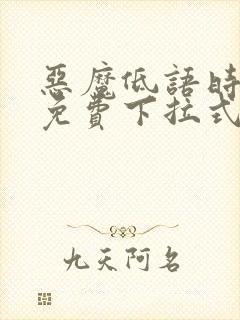 惡魔低語時
免費下拉式
九天阿名